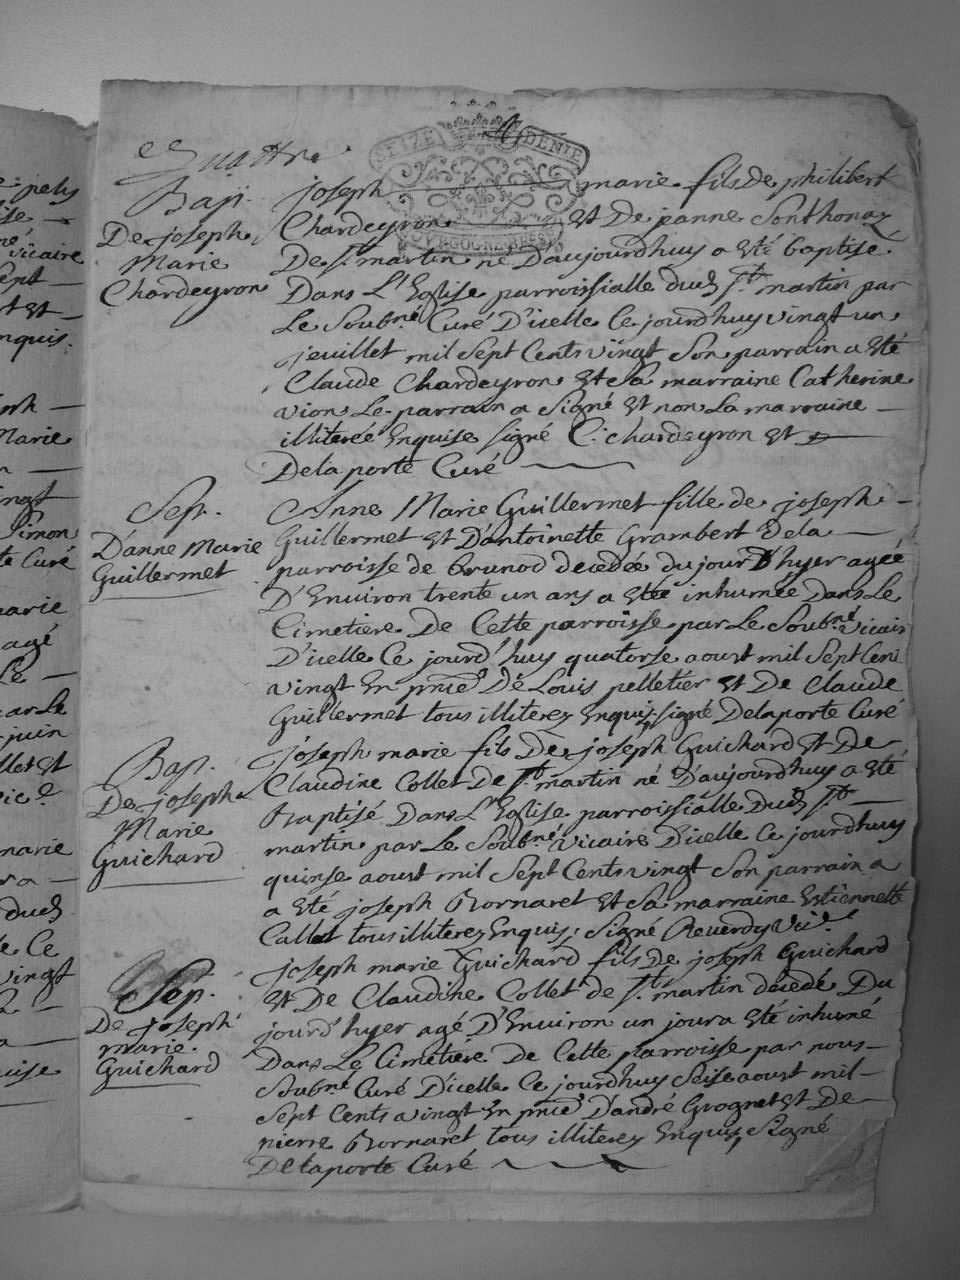 Quattre
SEIZE DENIE
BOURGOGNE BRESSE
Bap.
De joseph
Marie
Chardeyron
joseph marie fils de philibert
Chardeyron et De jeanne Sonthonaz
De st. martin né D'aujourd'huy a eté baptisé
Dans L'Eglise parroissialle dud st. martin par
Le Soubné. Curé D'icelle Ce jourd'huy vingt un
jeuillet mil Sept Cents vingt Son parrain a eté
Claude Chardeyron et Sa marraine Catherine
vion Le parrain a Signé et non La marraine
illiterée Enquise signé C. chardeyron et
Delaporte Curé
Sep.
D'anne Marie
Guillermet
Anne Marie Guillermet fille de joseph
Guillermet et D'antoinette Grambert De la
parroisse de brunod decedée du jour D'hyer agée
D'Environ trente un ans a eté inhumée Dans Le
Cimetiere De Cette parroisse par Le Soubné vicair
D'icelle Ce jourd'huy quatorse aoust mil Sept Cent
vingt En pnce De Louis pelletier et De Claude
Guillermet tous illiterez Enquis signé Delaporte Curé
Bap.
De joseph
Marie
Guichard
joseph marie fils De joseph Guichard et De
Claudine Collet De st. martin né D'aujourdhuy a eté
Baptisé Dans L'Eglise parroissialle Dud st
martin par Le Soubné vicaire D'icelle Ce jourdhuy
quinse aoust mil Sept Cents vingt Son parrain a
a eté joseph Bornaret et Sa marraine Estiennette
Callet tous illiterez Enquis; Signé Reverdy Vic.e
Sep.
De joseph
marie.
Guichard
joseph marie Guichard fils De joseph Guichard
et De Claudine Collet de st. martin decedé Du
jourd'hyer agé D'Environ un jour a eté inhumé
Dans Le Cimetiere De Cette parroisse par nous
Soubné Curé D'icelle Ce jourdhuy Seise aoust mil
Sept Cents vingt En pnce D'andré Grognet et De
pierre Bornaret tous illiterez Enquis Signé
Delaporte Curé